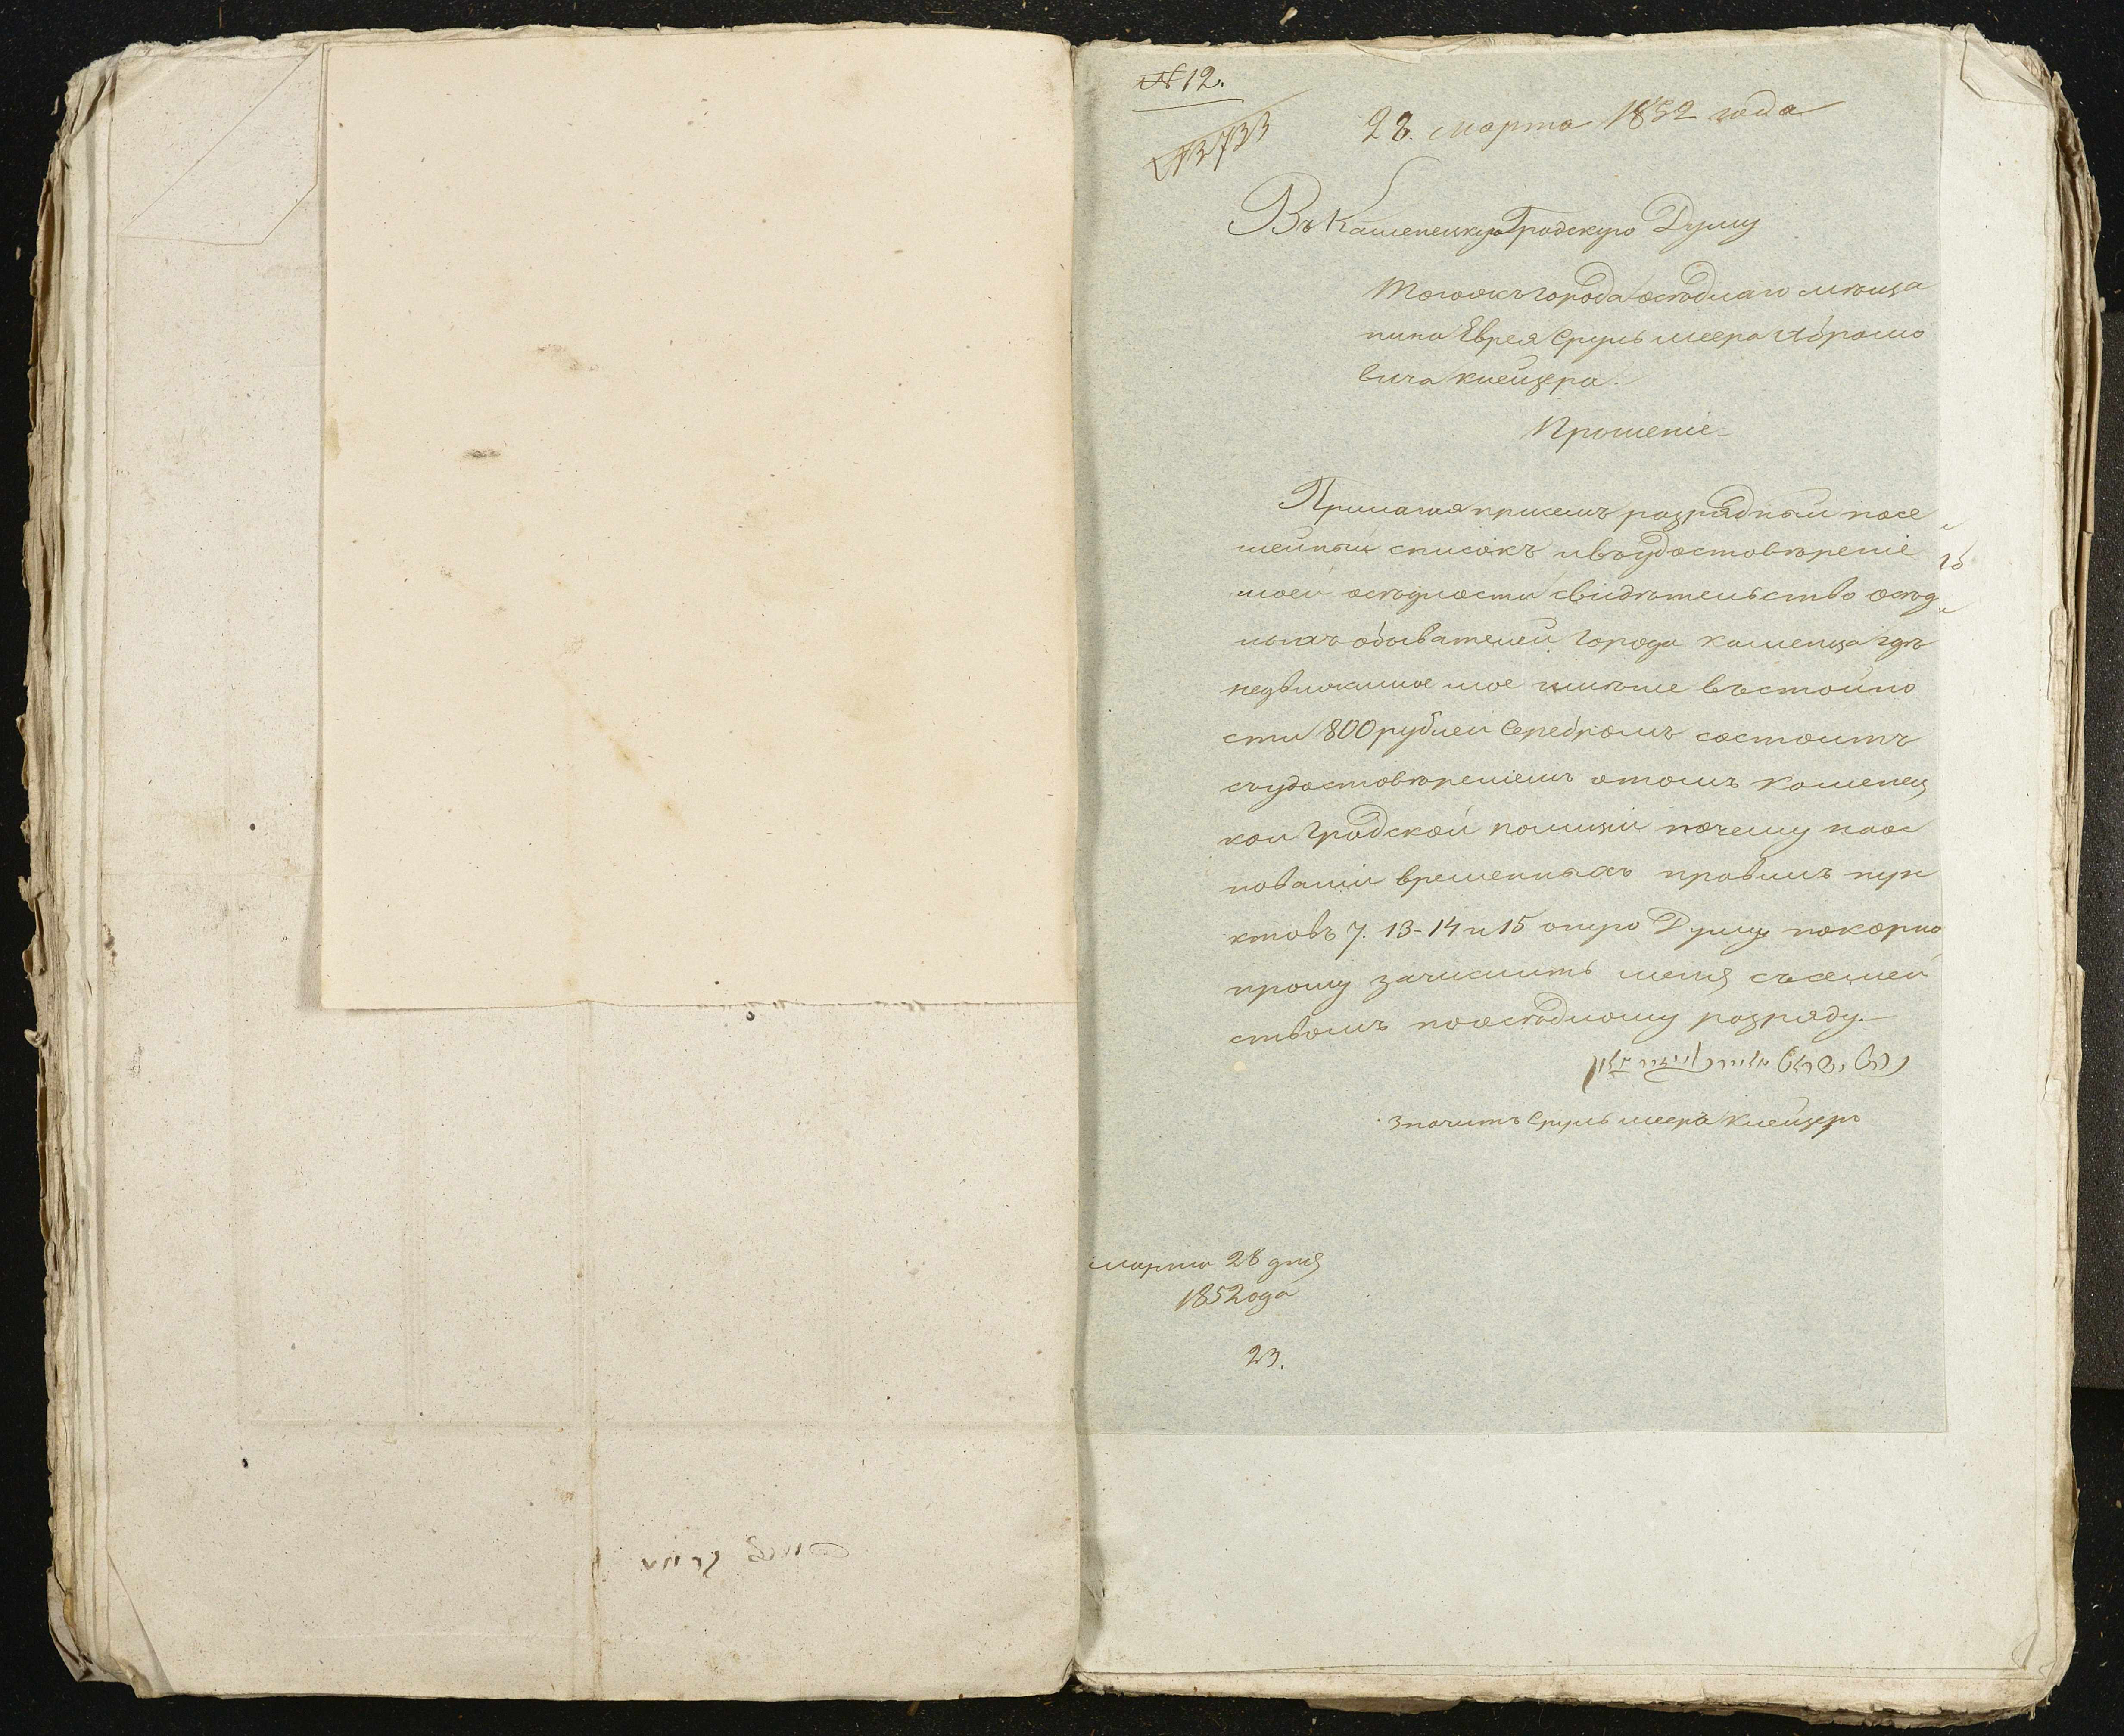 № 12.
28. марта 1852 года
Въ Каменецкую Градскую Думу
Тогожъ города осѣдлаго мѣща
нина Еврея Сруль Меера Абрамо
вича Клейцера.
Прошеніе
Прилагая присемъ разрядный посе
мейный списокъ и въ удостовѣреніе
моей осѣдлости свидѣтельство осѣд
лыхъ обывателей города Каменца гдѣ
недвижимое мое имѣніе въ стоимо
сти 800 рублей серебромъ состоитъ
съ удостовѣреніемъ о томъ Каменец
кой Градской полиціи почему на ос
нованіи временныхъ правилъ пун
ктовъ 7. 13-14 и 15 оную Думу покорно
прошу зачислить меня съ семей
ствомъ по осѣдлому разряду.
значитъ Сруль Меера Клейцеръ
марта 28 дня
1852 года
23.